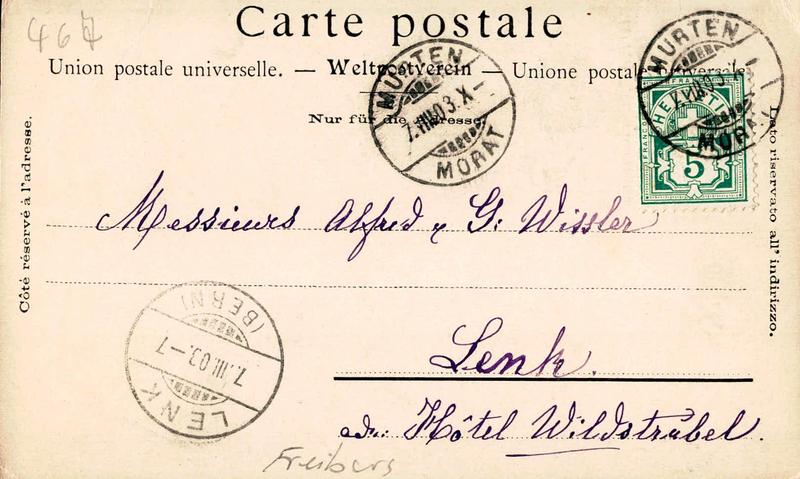 467
Carte postale
Union postale universelle. — Weltpostverein — Unione postale universale.
Nur für die Adresse.
MURTEN
7.VIII.03.X-
MORAT
MURTEN
7.VIII.03.X-
MORAT
HELVETIA
FRANCO
5
Côté réservé à l'adresse.
Lato riservato all' indirizzo.
Messieurs Alfred & G: Wissler
(BERN)
7.III.03.-7
LENK
Lenk.
Hôtel Wildstrubel.
Freiberg